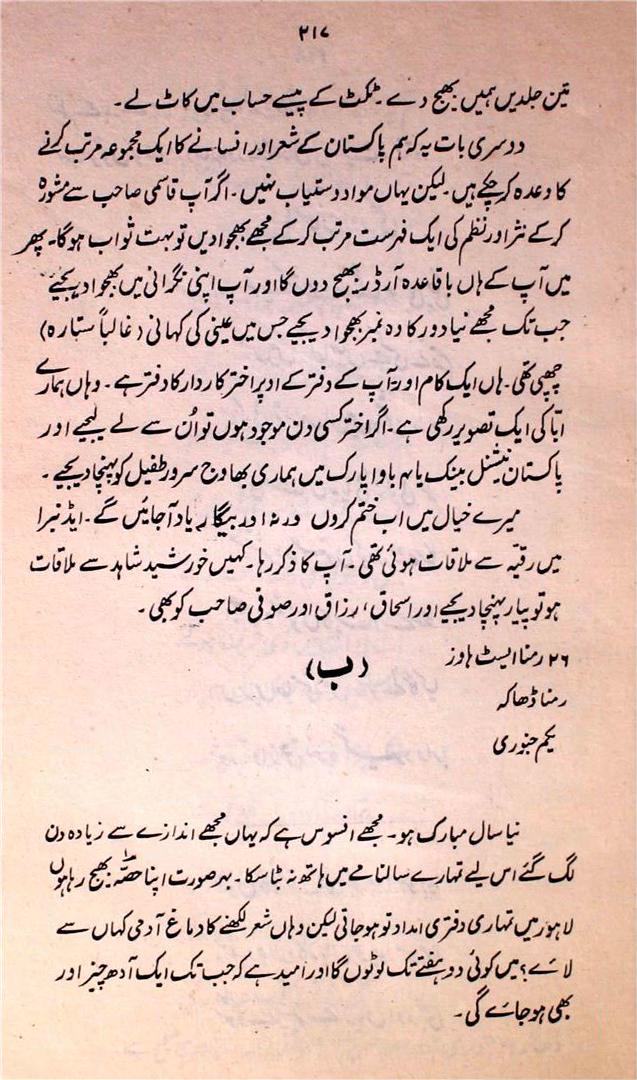 ۲۱۷
تین جلدیں ہمیں بھیج دے ۔ ٹکٹ کے پیسے حساب میں کاٹ لے ۔
دوسری بات یہ کہ ہم پاکستان کے شعر اور افسانے کا ایک مجموعہ مرتب کرنے
کا وعدہ کر چکے ہیں ۔ لیکن یہاں مواد دستیاب نہیں ۔ اگر آپ قاسمی صاحب سے مشورہ
کر کے نثر اور نظم کی ایک فہرست مرتب کر کے مجھے بھجوا دیں تو بہت ثواب ہوگا ۔ پھر
میں آپ کے ہاں باقاعدہ آرڈر بھیج دوں گا اور آپ اپنی نگرانی میں بھجوا دیجیے
جب تک مجھے نیا دور کا وہ نمبر بھجوا دیجیے جس میں عینی کی کہانی (غالباً ستارہ)
چھپی تھی ۔ ہاں ایک کام اور ۔ آپ کے دفتر کے اوپر اختر کاردار کا دفتر ہے ۔ وہاں ہمارے
ابّا کی ایک تصویر رکھی ہے ۔ اگر اختر کسی دن موجود ہوں تو اُن سے لے لیجیے اور
پاکستان نیشنل بینک یا ۱۰۷ باوا پارک میں ہماری بھاوج سرور طفیل کو پہنچا دیجیے ۔
میرے خیال میں اب ختم کروں ورنہ اور بیگار یاد آجائیں گے ۔ ایڈنبرا
میں رقیّہ سے ملاقات ہوئی تھی ۔ آپ کا ذکر رہا ۔ کہیں خورشید شاہد سے ملاقات
ہو تو پیار پہنچا دیجیے اور اسحاق، رزاق اور صوفی صاحب کو بھی ۔
(ب)
۲۶ رمنا ایسٹ ہاوز
رمنا ڈھاکہ
یکم جنوری
نیا سال مبارک ہو ۔ مجھے افسوس ہے کہ یہاں مجھے اندازے سے زیادہ دن
لگ گئے اس لیے تمہارے سالنامے میں ہاتھ نہ بٹا سکا ۔ بہر صورت اپنا حصّہ بھیج رہا ہوں
لاہور میں تمہاری دفتری امداد تو ہو جاتی لیکن وہاں شعر لکھنے کا دماغ آدمی کہاں سے
لائے؟ میں کوئی دو ہفتے تک لوٹوں گا اور امید ہے کہ جب تک ایک آدھ چیز اور
بھی ہو جائے گی ۔